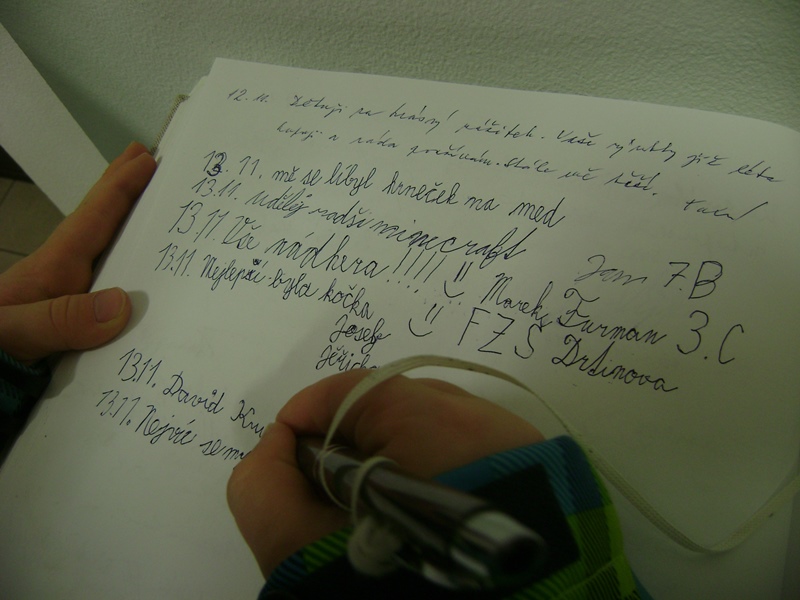 12. 11. Děkuji za krásný zážitek. Vaše výrobky již léta
kupuji a ráda používám. Stále mě těší.
13. 11. mě se líbyl hrneček na med
13.11. udělý radši minecraft
13.11 Vše nádhera!!!!! Jan 7.B
13.11. Nejlepší byla kočka Marek Furman 3.C
Josef FZŠ Drtinova
Jěřicha
13.11. David
13.11. Nejvíc se